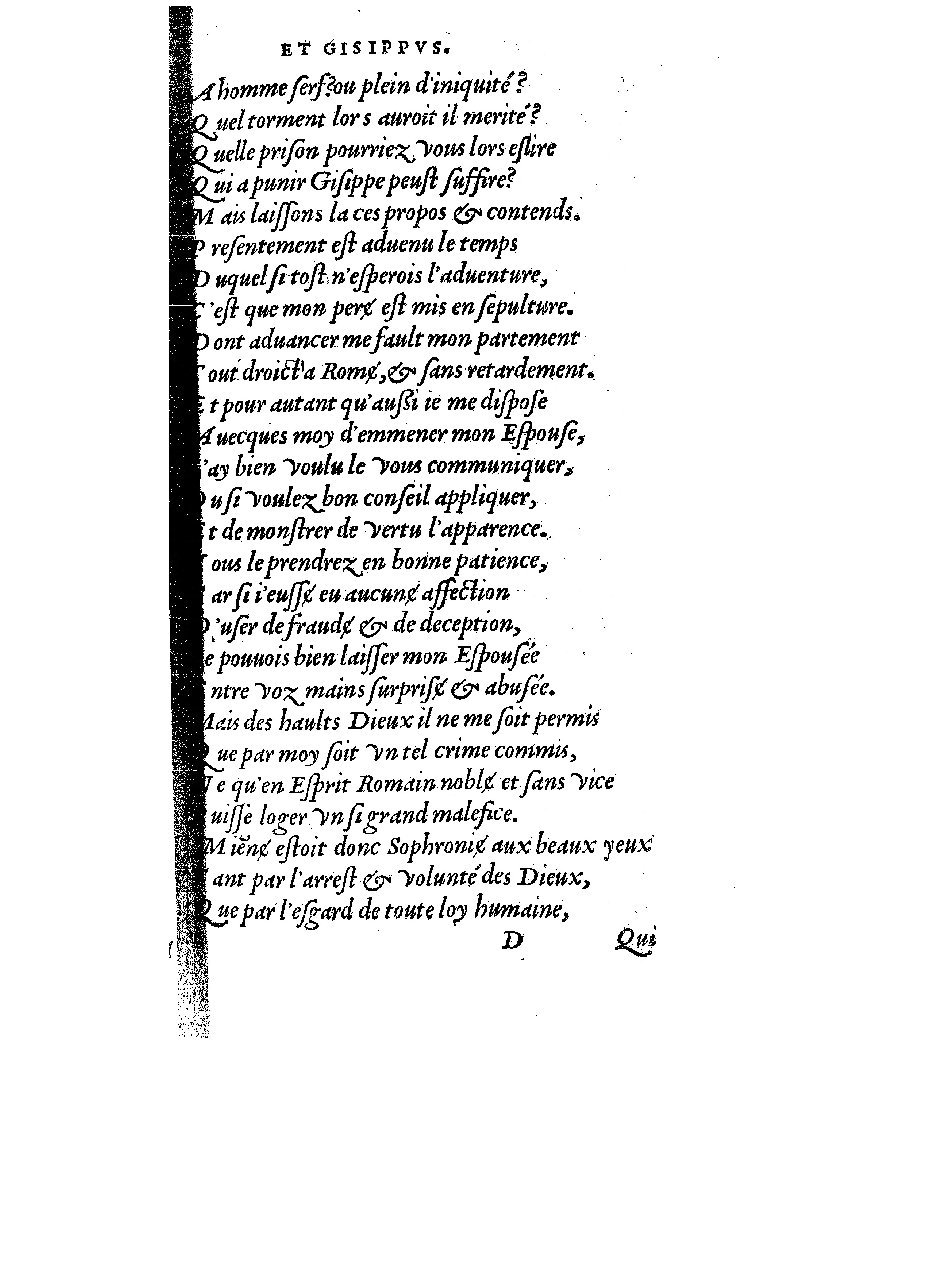 ET GISIPPVS.
A homme ſerf? ou plein d'iniquité?
Quel torment lors auroit il merité?
Quelle priſon pourriez vous lors eſlire
Qui a punir Giſippe peuſt ſuffire?
Mais laiſſons la ces propos & contends.
Preſentement eſt aduenu le temps
Duquel ſi toſt n'eſperois l'aduenture,
C'eſt que mon perɇ eſt mis en ſepulture.
Dont aduancer me fault mon partement
Tout droict a Romɇ, & ſans retardement.
Et pour autant qu'auſſi ie me diſpoſe
Auecques moy d'emmener mon Eſpouſe,
I'ay bien voulu le vous communiquer,
Ou ſi voulez bon conſeil appliquer,
Et de monſtrer de vertu l'apparence.
Vous le prendrez en bonne patience,
Car ſi i'euſſɇ eu aucunɇ affection
D'uſer de fraudɇ & de deception,
Ie pouuois bien laiſſer mon Eſpouſée
Entre voz mains ſurpriſɇ & abuſée.
Mais des haults Dieux il ne me ſoit permis
Que par moy ſoit vn tel crime commis,
Ne qu'en Eſprit Romain noblɇ et ſans vice
Puiſſe loger vn ſi grand malefice.
Miēnɇ eſtoit donc Sophroniɇ aux beaux yeux
Tant par l'arreſt & volunté des Dieux,
Que par l'eſgard de toute loy humaine,
D Qui